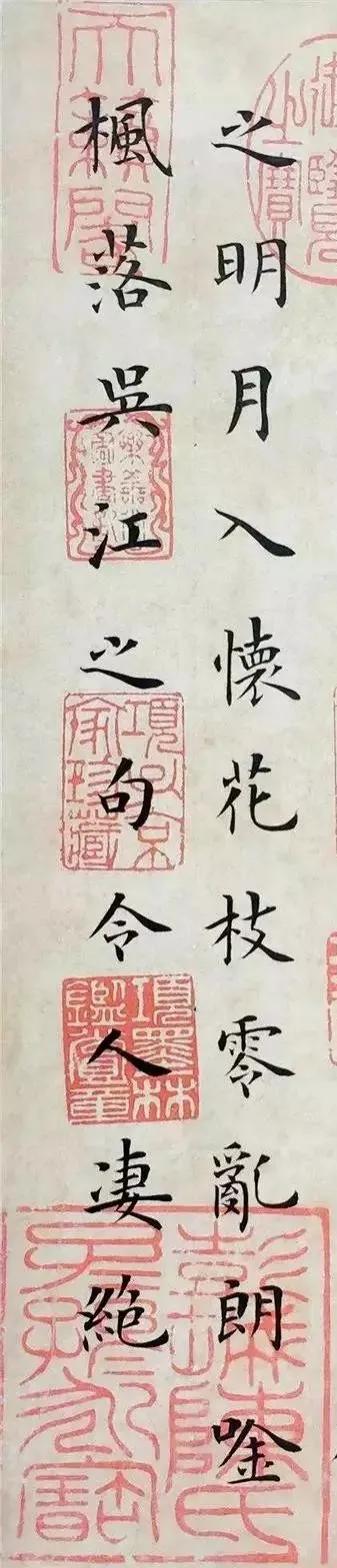 之明月入懷花枝零亂朗唫
楓落吳江之句令人凄絶